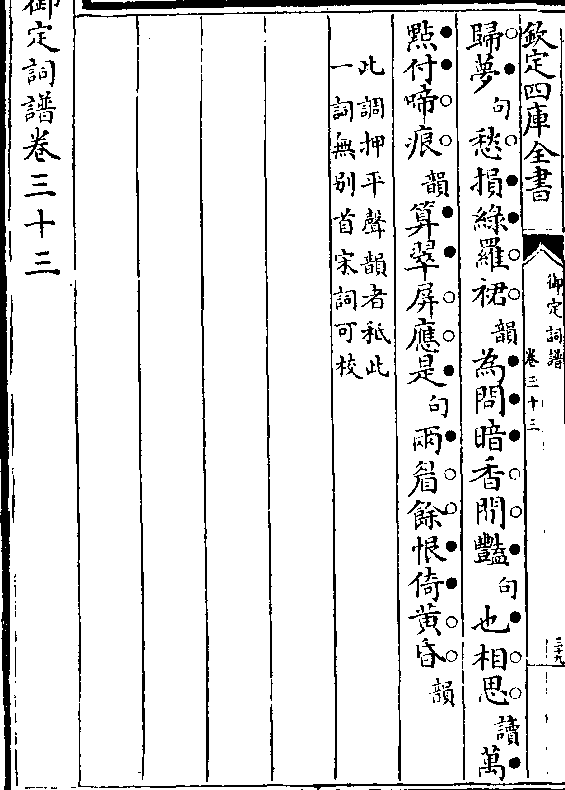 欽定四庫全書
御定詞譜
卷三十三
三十九
歸夢句愁損綠羅裙韻為問暗香閒豔句也相思讀萬
點付啼痕韻算翠屏應是句兩眉餘恨倚黃昏韻
此調押平聲韻者祇此
一詞無別首宋詞可校
御定詞譜卷三十三